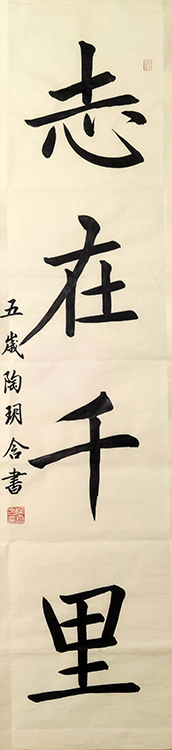 志在千里
五歲陶玥含書